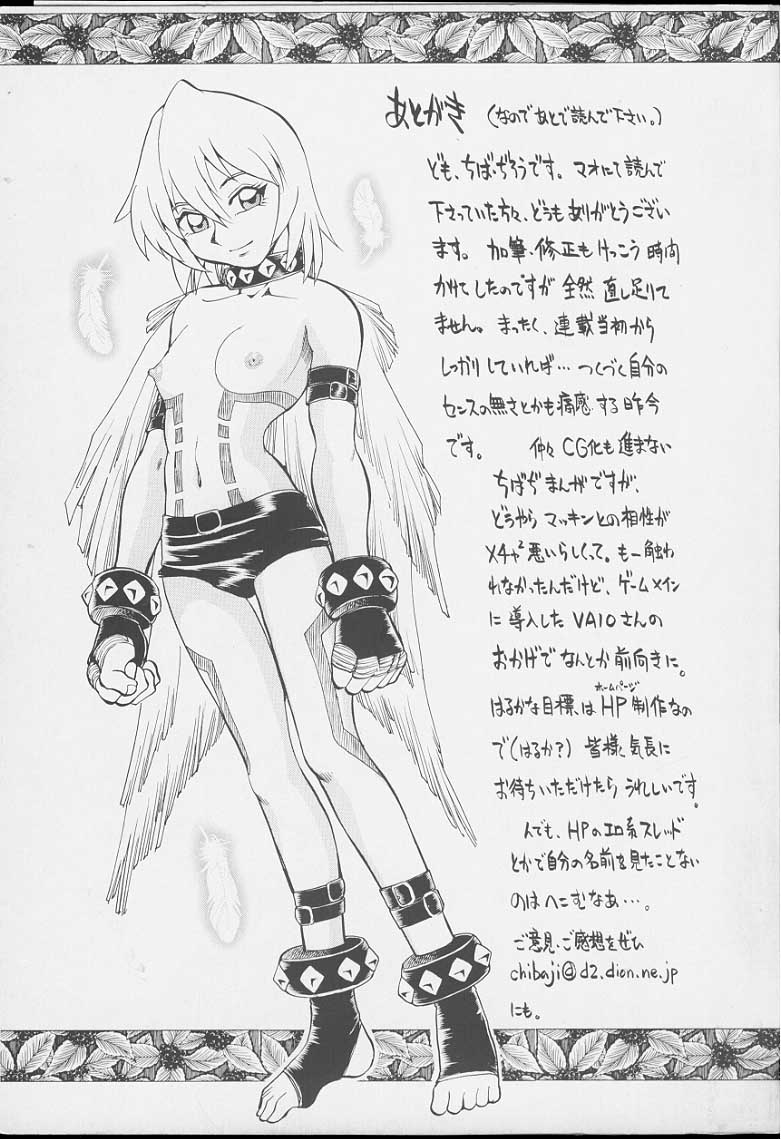 あとがき (なのであとで読んで下さい。)
ども、ちば・ぢろうです。マオにて読んで
下さっていた方々、どうもありがとうござい
ます。加筆・修正もけっこう時間
かけてしたのですが全然直し足りて
ません。まったく、連載当初から
しっかりしていれば…つくづく自分の
センスの無さとかも痛感する昨今
です。 仲々CG化も進まない
ちばぢまんがですが、
どうやらマッキンとの相性が
メチャ²悪いらしくって。もー触わ
れなかったんだけど、ゲームメイン
に導入したVAIOさんの
おかげでなんとか前向きに。
ホームページ
はるかな目標はHP制作なの
で(はるか?)皆様、気長に
お待ちいただけたらうれしいです。
んでも、HPのエロ系スレッド
とかで自分の名前を見たことない
のはへこむなあ…。
ご意見・ご感想をぜひ
chibaji@d2.dion.ne.jp
にも。